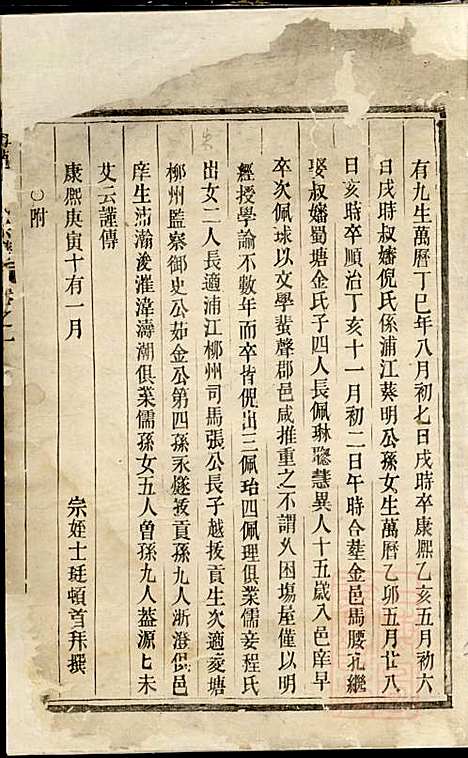 有九生萬曆丁巳年八月初七日戌時卒康熙乙亥五月初六
日戌時叔嬸倪氏係浦江葵明公孫女生萬曆乙卯五月廿八
日亥時卒順治丁亥十一月初二日午時合塟金邑馬腰孔繼
娶叔嬸蜀塘金氏子四人長佩琳聰慧異人十五歲入邑庠早
卒次佩球以文學蜚聲郡邑咸推重之不謂乆困塲屋僅以明
經授學諭不數年而卒皆倪出三佩珆四佩理俱業儒妾程氏
出女二人長適浦江栁州司馬張公長子越拔貢生次適夌塘
柳州監察御史公茹金公第四孫永鐩拔貢孫九人浙澄俱邑
庠生沛瀚浚漼湋濤潮俱業儒孫女五人曾孫九人葢源ヒ未
艾云謹傳
康熙庚寅十有一月
宗姪士珽頓首拜撰
○附